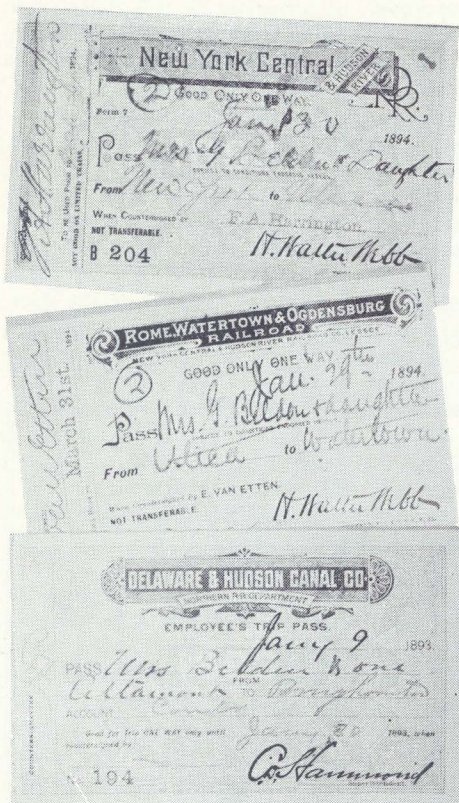 New York Central
& HUDSON RIVER
RR.
(2) GOOD ONLY ONE WAY.
Form 7
Jany 30 1894.
Pass Mrs G Belden & Daughter
From New York to
WHEN COUNTERSIGNED BY F. A. Harrington
NOT TRANSFERABLE.
B 204
H. Walter Webb
TO BE USED PRIOR TO 1894.
NOT GOOD ON LIMITED TRAINS.
ROME, WATERTOWN & OGDENSBURG
RAILROAD
NEW YORK CENTRAL & HUDSON RIVER RAILROAD CO. LESSEE
GOOD ONLY ONE WAY
(2) Jan. 29th 1894.
Pass Mrs. G. Beldon & daughter
From Utica to Watertown.
When Countersigned by E. VAN ETTEN.
NOT TRANSFERABLE.
H. Walter Webb
Van Etten
March 31st. 1894
DELAWARE & HUDSON CANAL CO.
NORTHERN R.R. DEPARTMENT
EMPLOYEE'S TRIP PASS.
Jany 9 1893.
PASS Mrs Belden & one
FROM
Altamont TO Binghamton
ACCOUNT
Good for Trip ONE WAY only until Jany 30 1893, when
countersigned by
194
C. S. Hammond
COUNTERSIGNATURE